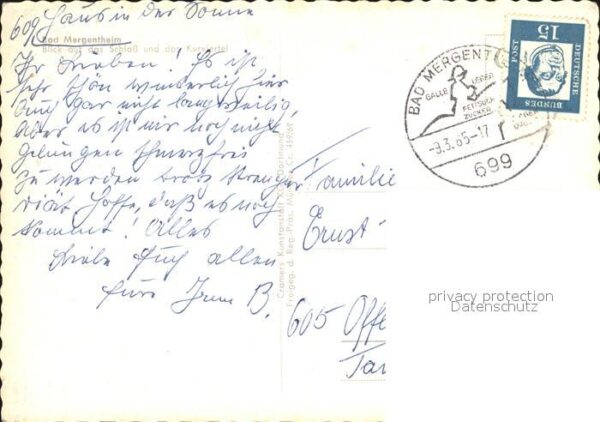 699 Haus in der Sonne
Bad Mergentheim
Blick auf das Schloß und das Kurviertel
Ihr Lieben! Es ist
sehr schön winterlich hier
und gar nicht langweilig,
aber es ist mir noch nicht
gelungen schmerzfrei
zu werden trotz strenger
Diät hoffe, daß es noch
kommt! Alles
Liebe Euch allen
Eure B.
Cramers Kunstanstalt
Freigeg. d. Reg.-Präs.
Familie
Ernst
605 Offe
BAD MERGENT
GALLE
LEBER
FETTSUCHT
ZUCKER
-9.3.65-17
699
15
POST
DEUTSCHE
BUNDES
privacy protection
Datenschutz